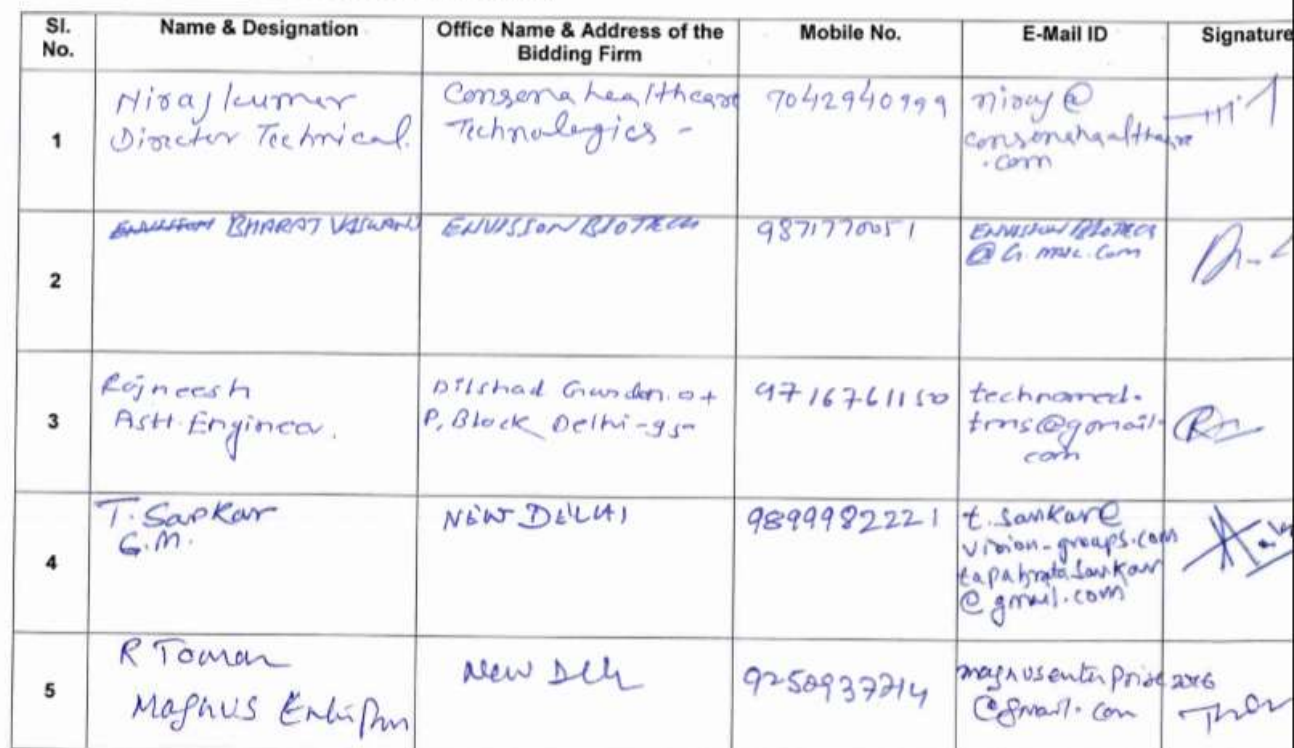 Sl. No.
Name & Designation
Office Name & Address of the Bidding Firm
Mobile No.
E-Mail ID
Signature
1
Niraj kumar
Director Technical.
Consona healthcare
Technologies -
7042940999
niraj@
consonahealthcare
.com
2
BHARAT VASWANI
ENVISSON BIOTECH
9871770051
ENVISSION BIOTECH
@ G.MAIL.COM
3
Rajneesh
Astt. Engineer.
Dilshad Garden.
P, Block Delhi-95
9716761150
technomed.
tms@gmail.
com
4
T. Sarkar
G.M.
NEW DELHI
9899982221
t.sarkar@
vision-groups.com
tapabratasarkar
@gmail.com
5
R Tomar
Magnus
New Delh
9250937714
magnusenterprise2016
@gmail.com